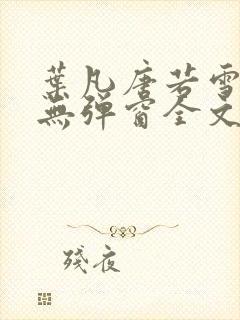 葉凡唐若雪
無彈窗全文
殘夜